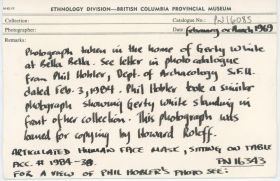 ETHNOLOGY DIVISION—BRITISH COLUMBIA PROVINCIAL MUSEUM
Collection: Catalogue No.: PN 16085
Photographer: Date: February or March 1969
Remarks:
Photograph taken in the home of Gerty White
at Bella Bella. See letter in photo catalogue
from Phil Hobler, Dept. of Archaeology S.F.U.
dated Feb. 3, 1984. Phil Hobler took a similar
photograph showing Gerty White standing in
front of her collection. This photograph was
loaned for copying by Howard Roloff.
ARTICULATED HUMAN FACE MASK, SITTING ON TABLE
ACC. # 1984-38. PN 16343
FOR A VIEW OF PHIL HOBLER'S PHOTO SEE: